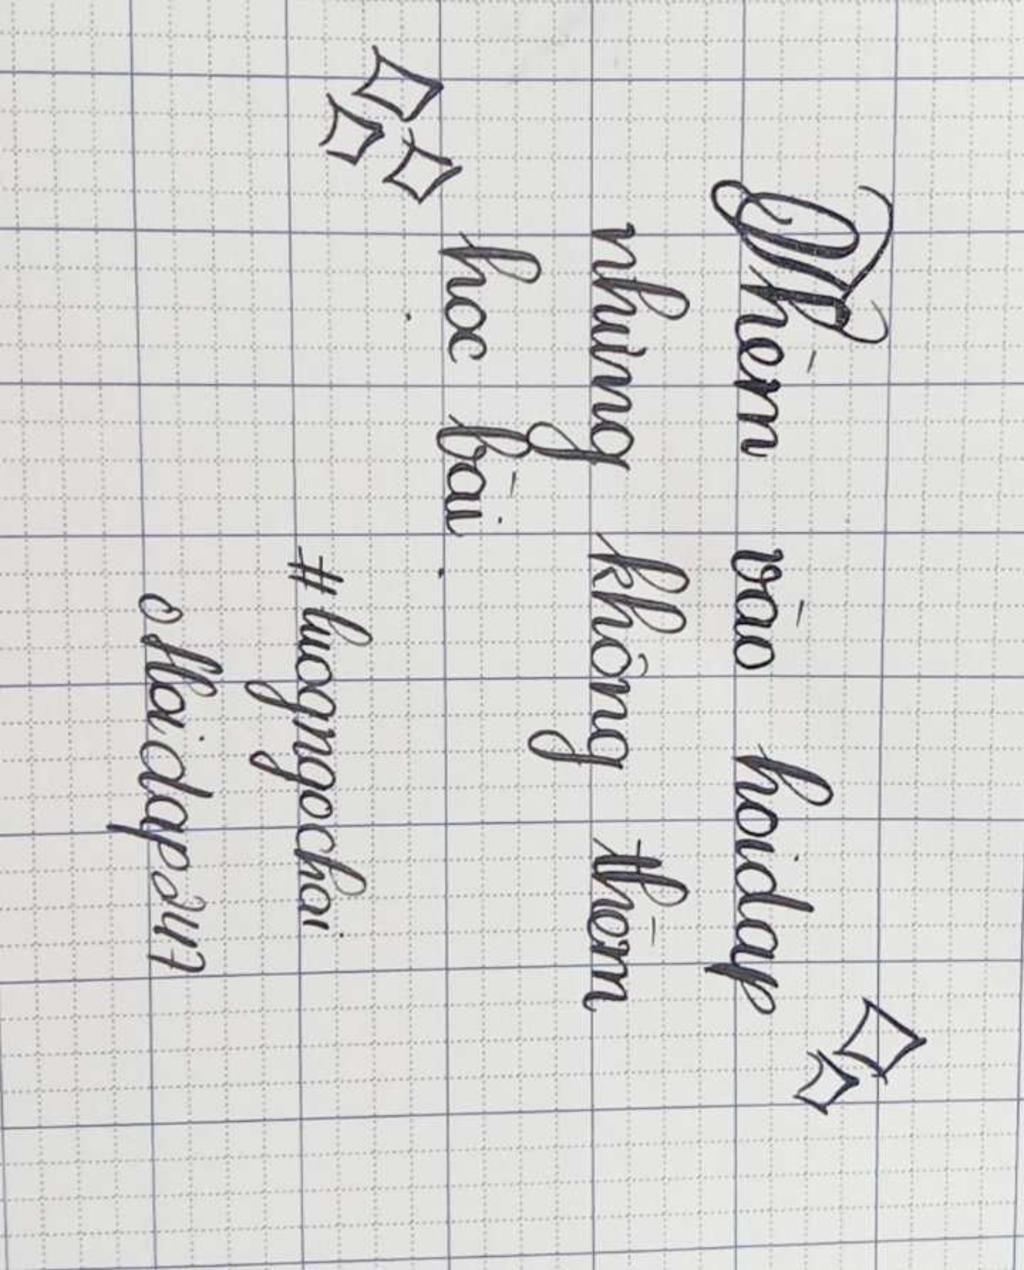 Thèm vào hoidap
nhưng không thèm
học bài.
#luogngochai
Hoidap247